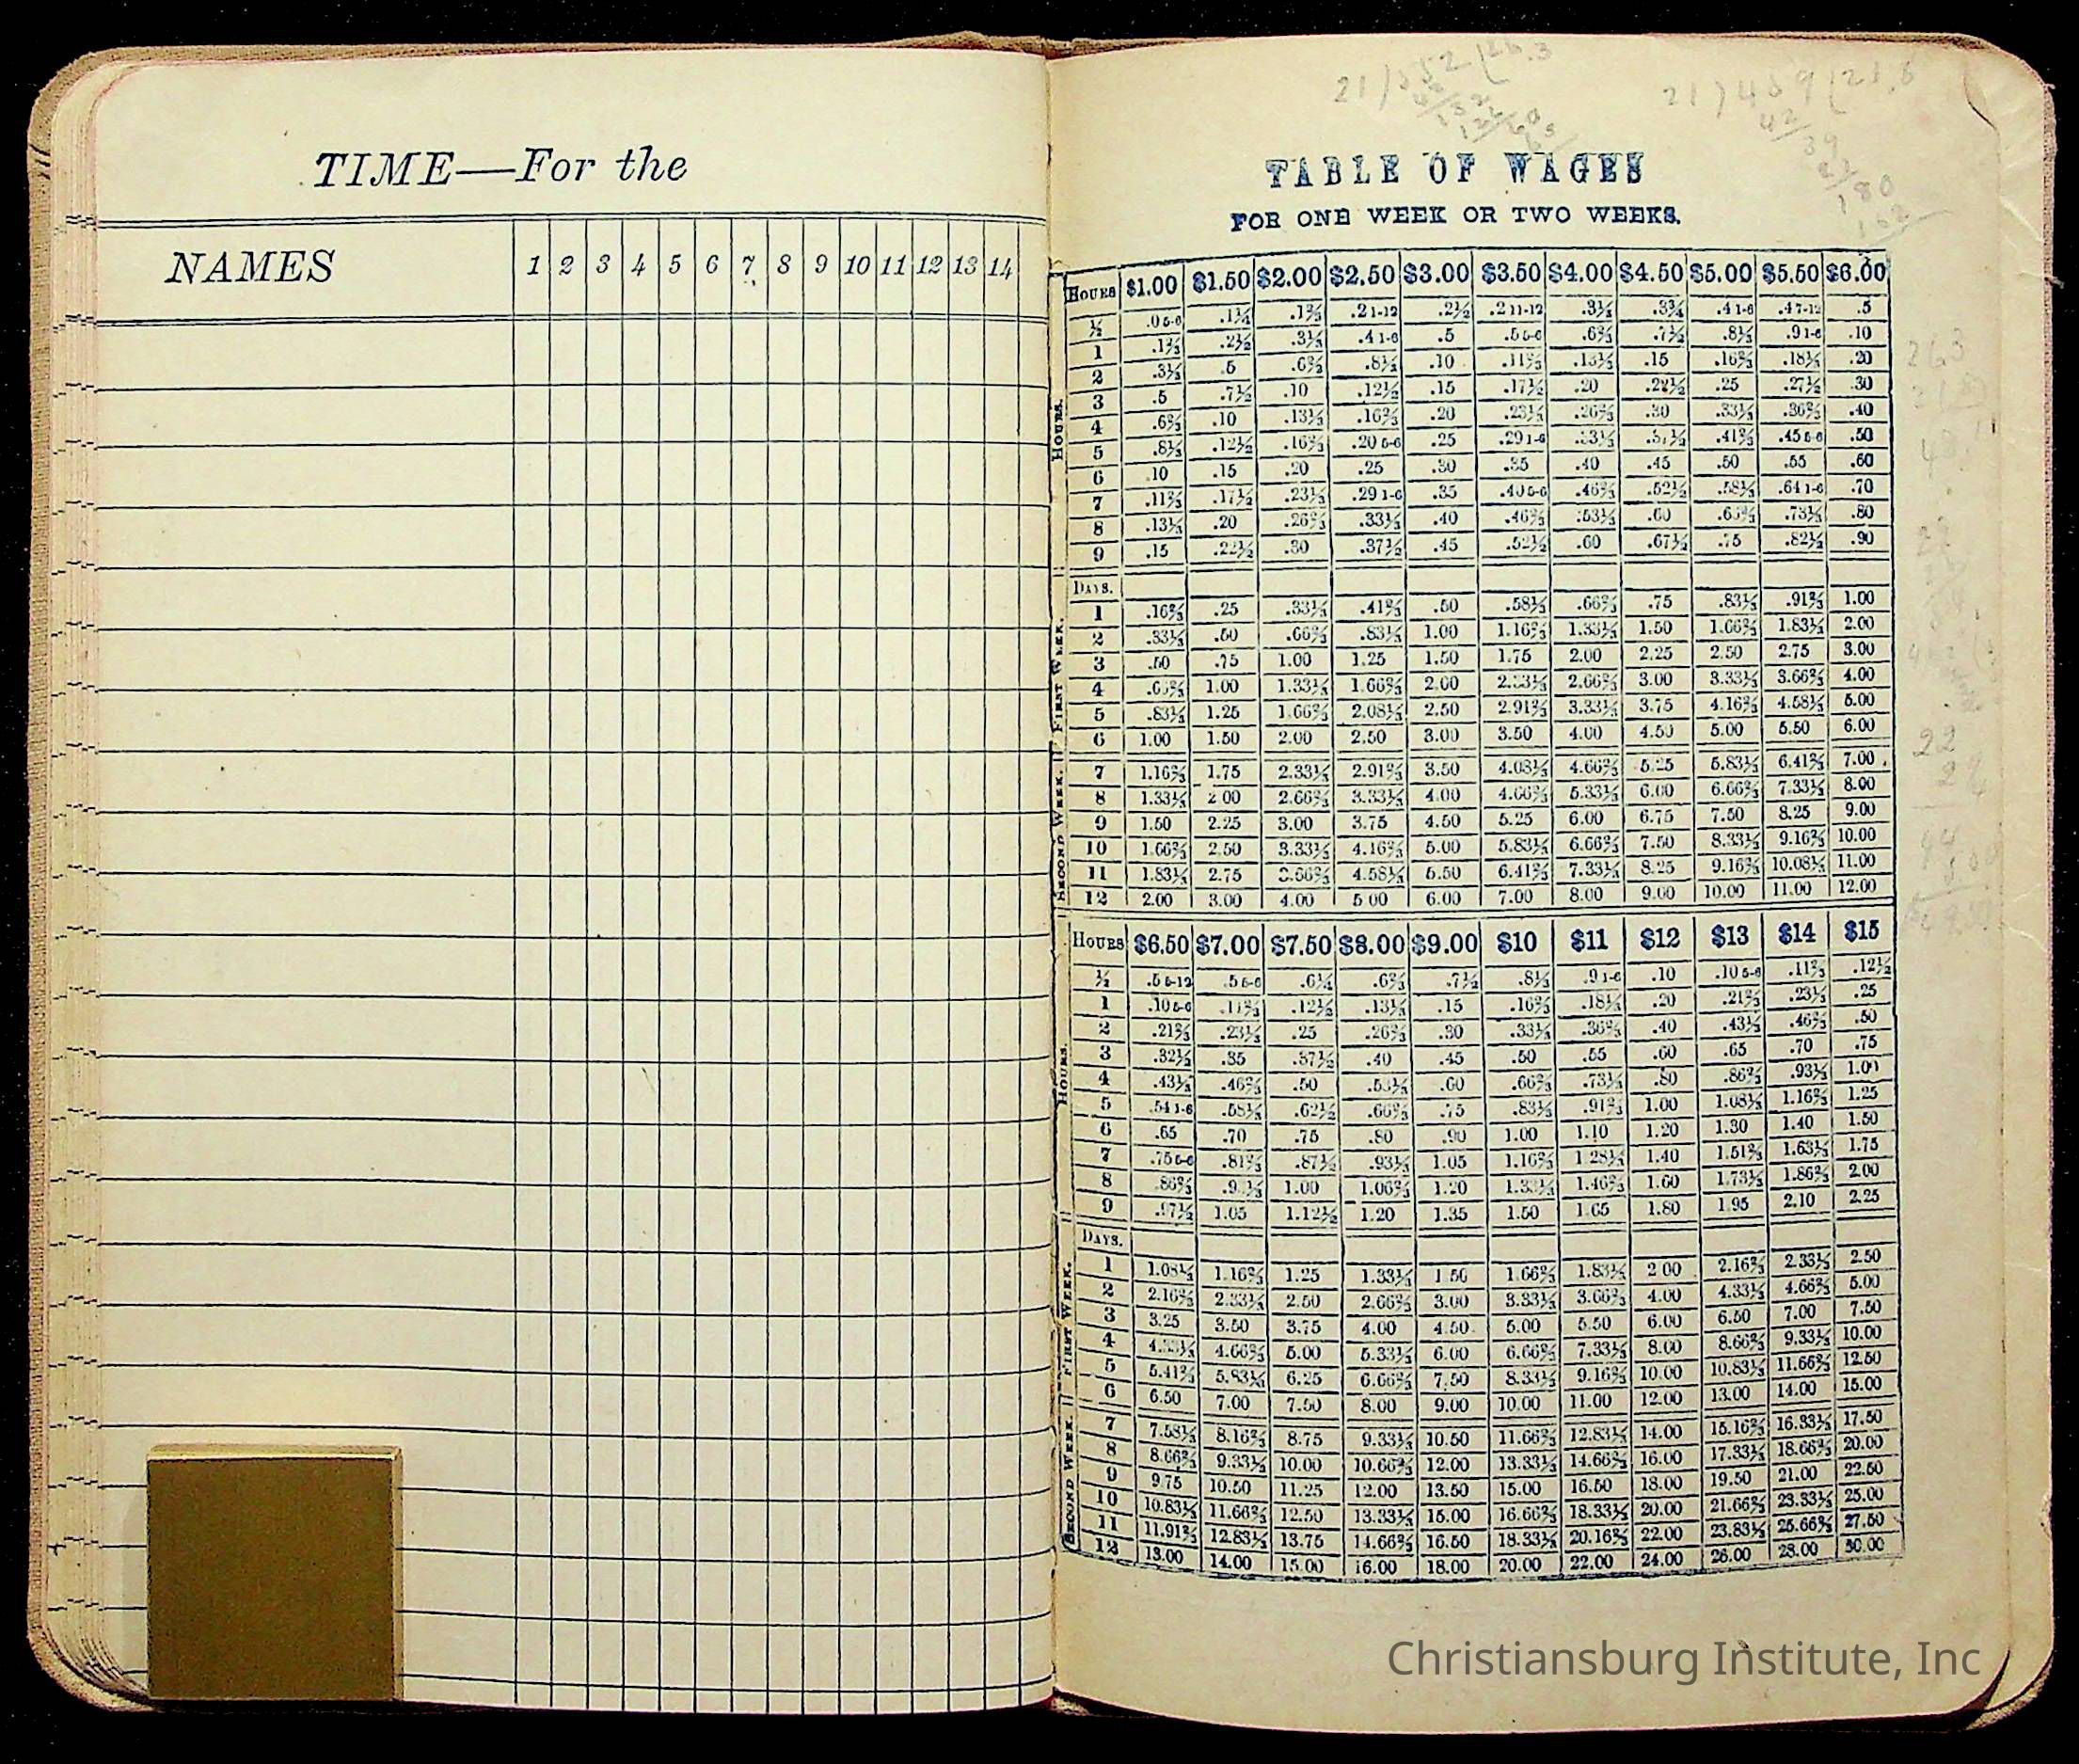 TIME—For the
NAMES 1 2 3 4 5 6 7 8 9 10 11 12 13 14
TABLE OF WAGES
FOR ONE WEEK OR TWO WEEKS.
HOURS $1.00 $1.50 $2.00 $2.50 $3.00 $3.50 $4.00 $4.50 $5.00 $5.50 $6.00
HOURS.
½ .0 5-6 .1¼ .1⅔ .2 1-12 .2½ .2 11-12 .3⅓ .3¾ .4 1-6 .4 7-12 .5
1 .1⅔ .2½ .3⅓ .4 1-6 .5 .5 5-6 .6⅔ .7½ .8⅓ .9 1-6 .10
2 .3⅓ .5 .6⅔ .8⅓ .10 .11⅔ .13⅓ .15 .16⅔ .18⅓ .20
3 .5 .7½ .10 .12½ .15 .17½ .20 .22½ .25 .27½ .30
4 .6⅔ .10 .13⅓ .16⅔ .20 .23⅓ .26⅔ .30 .33⅓ .36⅔ .40
5 .8⅓ .12½ .16⅔ .20 5-6 .25 .29 1-6 .33⅓ .37½ .41⅔ .45 5-6 .50
6 .10 .15 .20 .25 .30 .35 .40 .45 .50 .55 .60
7 .11⅔ .17½ .23⅓ .29 1-6 .35 .40 5-6 .46⅔ .52½ .58⅓ .64 1-6 .70
8 .13⅓ .20 .26⅔ .33⅓ .40 .46⅔ .53⅓ .60 .66⅔ .73⅓ .80
9 .15 .22½ .30 .37½ .45 .52½ .60 .67½ .75 .82½ .90
DAYS.
FIRST WEEK.
1 .16⅔ .25 .33⅓ .41⅔ .50 .58⅓ .66⅔ .75 .83⅓ .91⅔ 1.00
2 .33⅓ .50 .66⅔ .83⅓ 1.00 1.16⅔ 1.33⅓ 1.50 1.66⅔ 1.83⅓ 2.00
3 .50 .75 1.00 1.25 1.50 1.75 2.00 2.25 2.50 2.75 3.00
4 .66⅔ 1.00 1.33⅓ 1.66⅔ 2.00 2.33⅓ 2.66⅔ 3.00 3.33⅓ 3.66⅔ 4.00
5 .83⅓ 1.25 1.66⅔ 2.08⅓ 2.50 2.91⅔ 3.33⅓ 3.75 4.16⅔ 4.58⅓ 5.00
6 1.00 1.50 2.00 2.50 3.00 3.50 4.00 4.50 5.00 5.50 6.00
SECOND WEEK.
7 1.16⅔ 1.75 2.33⅓ 2.91⅔ 3.50 4.08⅓ 4.66⅔ 5.25 5.83⅓ 6.41⅔ 7.00
8 1.33⅓ 2 00 2.66⅔ 3.33⅓ 4.00 4.66⅔ 5.33⅓ 6.00 6.66⅔ 7.33⅓ 8.00
9 1.50 2.25 3.00 3.75 4.50 5.25 6.00 6.75 7.50 8.25 9.00
10 1.66⅔ 2.50 3.33⅓ 4.16⅔ 5.00 5.83⅓ 6.66⅔ 7.50 8.33⅓ 9.16⅔ 10.00
11 1.83⅓ 2.75 3.66⅔ 4.58⅓ 5.50 6.41⅔ 7.33⅓ 8.25 9.16⅔ 10.08⅓ 11.00
12 2.00 3.00 4.00 5 00 6.00 7.00 8.00 9.00 10.00 11.00 12.00
HOURS $6.50 $7.00 $7.50 $8.00 $9.00 $10 $11 $12 $13 $14 $15
HOURS.
½ .5 5-12 .5 5-6 .6¼ .6⅔ .7½ .8⅓ .9 1-6 .10 .10 5-6 .11⅔ .12½
1 .10 5-6 .11⅔ .12½ .13⅓ .15 .16⅔ .18⅓ .20 .21⅔ .23⅓ .25
2 .21⅔ .23⅓ .25 .26⅔ .30 .33⅓ .36⅔ .40 .43⅓ .46⅔ .50
3 .32½ .35 .37½ .40 .45 .50 .55 .60 .65 .70 .75
4 .43⅓ .46⅔ .50 .53⅓ .60 .66⅔ .73⅓ .80 .86⅔ .93⅓ 1.00
5 .54 1-6 .58⅓ .62½ .66⅔ .75 .83⅓ .91⅔ 1.00 1.08⅓ 1.16⅔ 1.25
6 .65 .70 .75 .80 .90 1.00 1.10 1.20 1.30 1.40 1.50
7 .75 5-6 .81⅔ .87½ .93⅓ 1.05 1.16⅔ 1 28⅓ 1.40 1.51⅔ 1.63⅓ 1.75
8 .86⅔ .93⅓ 1.00 1.06⅔ 1.20 1.33⅓ 1.46⅔ 1.60 1.73⅓ 1.86⅔ 2.00
9 .97½ 1.05 1.12½ 1.20 1.35 1.50 1.65 1.80 1.95 2.10 2.25
DAYS.
FIRST WEEK.
1 1.08⅓ 1.16⅔ 1.25 1.33⅓ 1 50 1.66⅔ 1.83⅓ 2 00 2.16⅔ 2.33⅓ 2.50
2 2.16⅔ 2.33⅓ 2.50 2.66⅔ 3.00 3.33⅓ 3.66⅔ 4.00 4.33⅓ 4.66⅔ 5.00
3 3.25 3.50 3.75 4.00 4.50 5.00 5.50 6.00 6.50 7.00 7.50
4 4.33⅓ 4.66⅔ 5.00 5.33⅓ 6.00 6.66⅔ 7.33⅓ 8.00 8.66⅔ 9.33⅓ 10.00
5 5.41⅔ 5.83⅓ 6.25 6.66⅔ 7.50 8.33⅓ 9.16⅔ 10.00 10.83⅓ 11.66⅔ 12.50
6 6.50 7.00 7.50 8.00 9.00 10.00 11.00 12.00 13.00 14.00 15.00
SECOND WEEK.
7 7.58⅓ 8.16⅔ 8.75 9.33⅓ 10.50 11.66⅔ 12.83⅓ 14.00 15.16⅔ 16.33⅓ 17.50
8 8.66⅔ 9.33⅓ 10.00 10.66⅔ 12.00 13.33⅓ 14.66⅔ 16.00 17.33⅓ 18.66⅔ 20.00
9 9.75 10.50 11.25 12.00 13.50 15.00 16.50 18.00 19.50 21.00 22.50
10 10.83⅓ 11.66⅔ 12.50 13.33⅓ 15.00 16.66⅔ 18.33⅓ 20.00 21.66⅔ 23.33⅓ 25.00
11 11.91⅔ 12.83⅓ 13.75 14.66⅔ 16.50 18.33⅓ 20.16⅔ 22.00 23.83⅓ 25.66⅔ 27.50
12 13.00 14.00 15.00 16.00 18.00 20.00 22.00 24.00 26.00 28.00 30.00
Christiansburg Institute, Inc